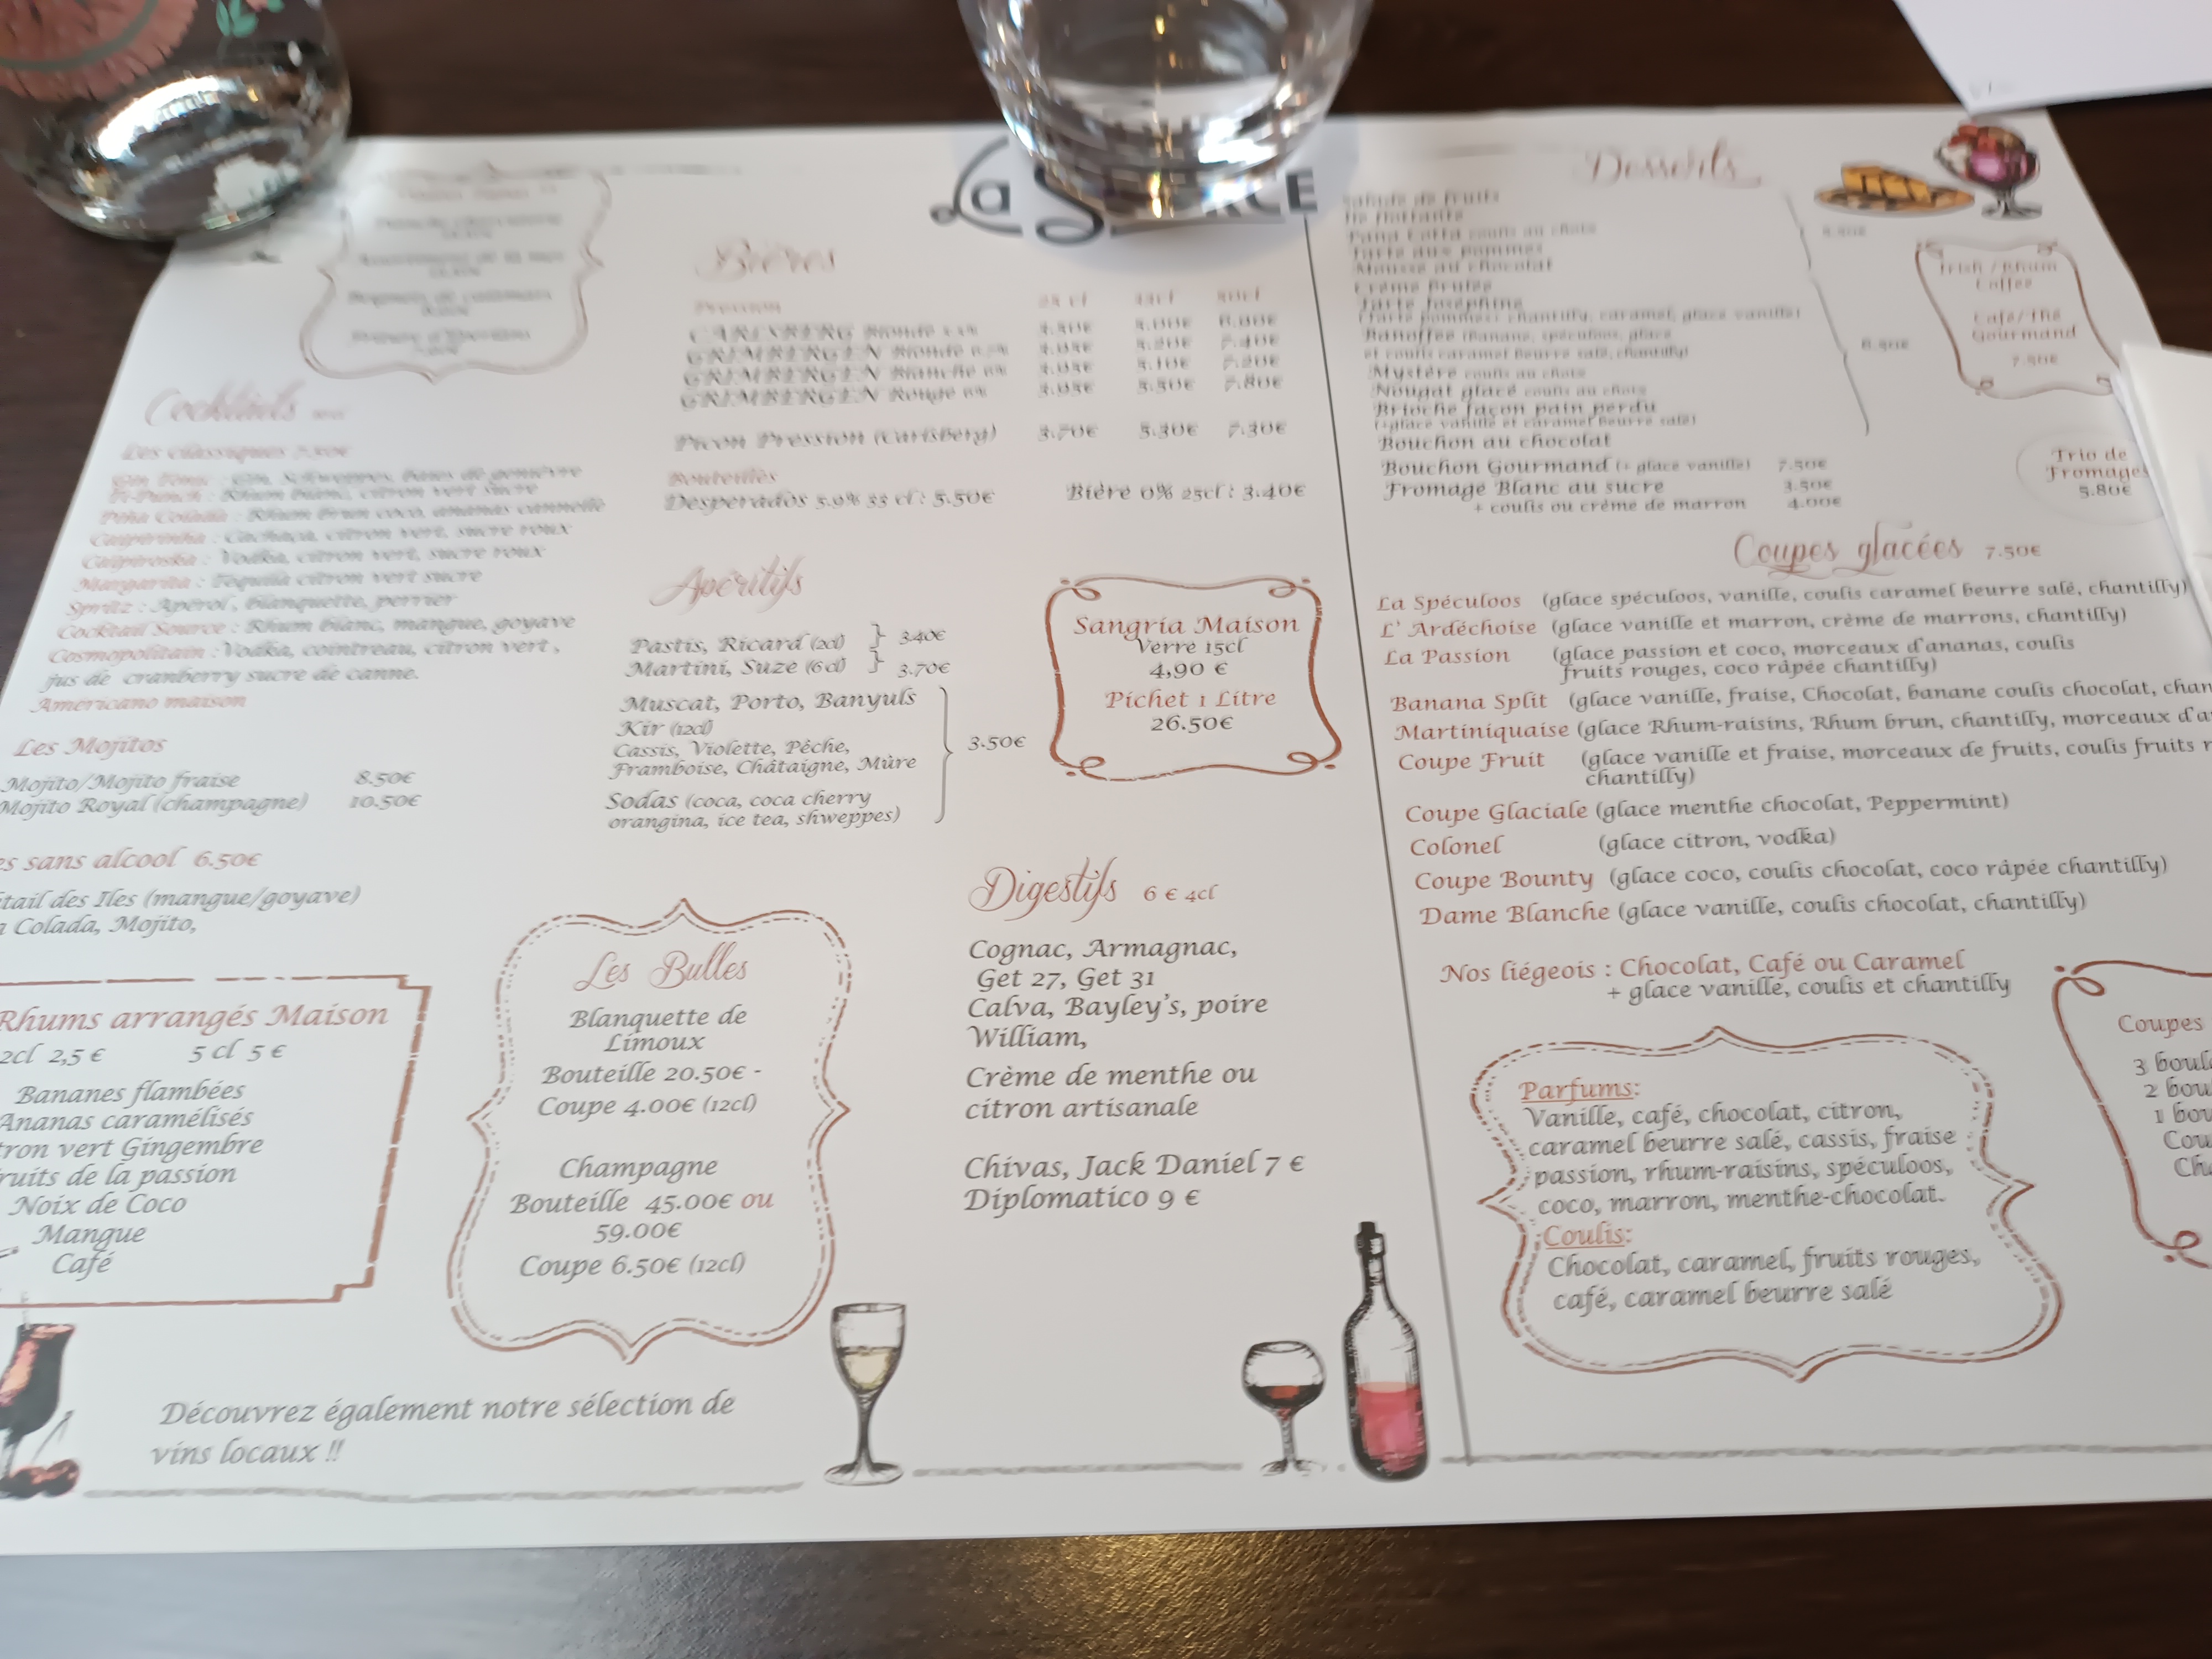 La
Cocktails
Les classiques 7.50€
Gin Tonic : Gin, Schweppes, baies de genièvre
Ti-Punch : Rhum blanc, citron vert sucre
Piña Colada : Rhum brun coco, ananas cannelle
Caipirinha : Cachaça, citron vert, sucre roux
Caïpiroska : Vodka, citron vert, sucre roux
Margarita : Tequila citron vert sucre
Spritz : Apérol, blanquette, perrier
Cocktail Source : Rhum blanc, mangue, goyave
Cosmopolitain : Vodka, cointreau, citron vert,
jus de cranberry sucre de canne.
Américano maison
Les Mojitos
Mojito/Mojito fraise 8.50€
Mojito Royal (champagne) 10.50€
sans alcool 6.50€
des Iles (mangue/goyave)
Colada, Mojito,
Rhums arrangés Maison
2cl 2,5 € 5 cl 5 €
Bananes flambées
Ananas caramélisés
vert Gingembre
de la passion
Noix de Coco
Mangue
Café
Découvrez également notre sélection de
vins locaux !!
Bières
Pression 25 cl
CARLSBERG Blonde
GRIMBERGEN Blonde
GRIMBERGEN Blanche
GRIMBERGEN Rouge
Picon Pression (Carlsberg) 3.70€ 5.30€ 7.30€
Bouteilles
Desperados 5.9% 33 cl : 5.50€ Bière 0% 25cl : 3.40€
Apéritifs
Pastis, Ricard (2cl) } 3.40€
Martini, Suze (6cl) } 3.70€
Muscat, Porto, Banyuls
Kir (12cl)
Cassis, Violette, Pêche,
Framboise, Châtaigne, Mûre
3.50€
Sodas (coca, coca cherry
orangina, ice tea, shweppes)
Sangria Maison
Verre 15cl
4,90 €
Pichet 1 Litre
26.50€
Les Bulles
Blanquette de
Limoux
Bouteille 20.50€ -
Coupe 4.00€ (12cl)
Champagne
Bouteille 45.00€ ou
59.00€
Coupe 6.50€ (12cl)
Digestifs 6 € 4cl
Cognac, Armagnac,
Get 27, Get 31
Calva, Bayley's, poire
William,
Crème de menthe ou
citron artisanale
Chivas, Jack Daniel 7 €
Diplomatico 9 €
Desserts
Salade de fruits
Ile flottante
Pana Cotta coulis au choix
Tarte aux pommes
Mousse au chocolat
Crème Brulée
Tarte Joséphine
(Tarte pommes, chantilly, caramel, glace vanille)
Banoffee (Banane, spéculoos, glace
et coulis caramel beurre salé, chantilly)
Mystère coulis au choix
Nougat glacé coulis au choix
Brioche façon pain perdu
(+glace vanille et caramel beurre salé)
Bouchon au chocolat
Bouchon Gourmand (+ glace vanille) 7.50€
Fromage Blanc au sucre 3.50€
+ coulis ou crème de marron 4.00€
Irish / Rhum
Coffee
Café/Thé
Gourmand
7.50€
Trio de
Fromages
5.80€
Coupes glacées 7.50€
La Spéculoos (glace spéculoos, vanille, coulis caramel beurre salé, chantilly)
L' Ardéchoise (glace vanille et marron, crème de marrons, chantilly)
La Passion (glace passion et coco, morceaux d'ananas, coulis
fruits rouges, coco râpée chantilly)
Banana Split (glace vanille, fraise, Chocolat, banane coulis chocolat,
Martiniquaise (glace Rhum-raisins, Rhum brun, chantilly, morceaux
Coupe Fruit (glace vanille et fraise, morceaux de fruits, coulis fruits
chantilly)
Coupe Glaciale (glace menthe chocolat, Peppermint)
Colonel (glace citron, vodka)
Coupe Bounty (glace coco, coulis chocolat, coco râpée chantilly)
Dame Blanche (glace vanille, coulis chocolat, chantilly)
Nos liégeois : Chocolat, Café ou Caramel
+ glace vanille, coulis et chantilly
Parfums:
Vanille, café, chocolat, citron,
caramel beurre salé, cassis, fraise
passion, rhum-raisins, spéculoos,
coco, marron, menthe-chocolat.
Coulis:
Chocolat, caramel, fruits rouges,
café, caramel beurre salé
Coupes
3
2
1